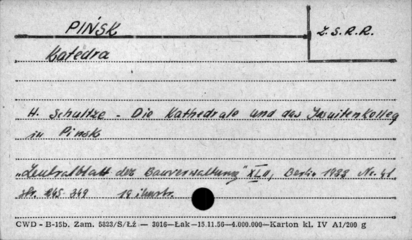 PIŃSK
Z.S.R.R.
Katedra
H. Schultze - Die Kathedrale und das Jesuitenkolleg
in Pinsk
"Zentralblatt der Bauverwaltung" XLII, Berlin Nr. 41
str. 345-349 18 ilustr.
CWD - B-15b, Zam. 5823/S/Łź — 3016—Łak—15.11.56—4.000.000—Karton kl. IV A1/200 g